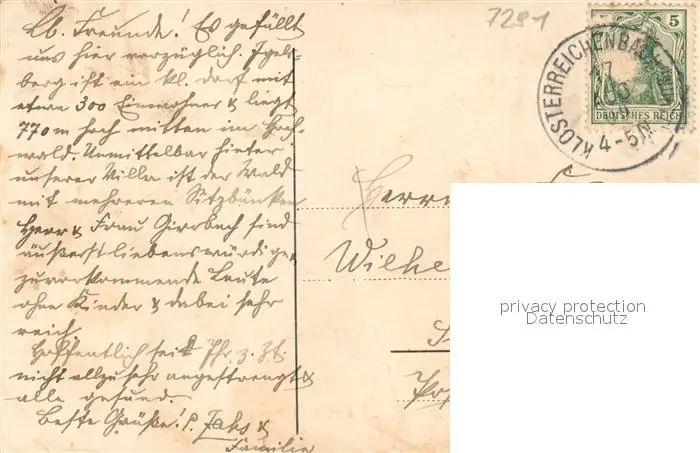 Lb. Freunde! Es gefällt
uns hier vorzüglich. Igels-
berg ist ein kl. Dorf mit
etwa 300 Einwohner & liegt
770 m hoch mitten im Hoch-
wald. Unmittelbar hinter
unserer Villa ist der Wald
mit mehreren Sitzbänken
Herr & Frau Girrbach sind
äußerst liebenswürdige,
zuvorkommende Leute
ohne Kinder & dabei sehr
reich.
Hoffentlich seid Ihr z. Zt.
nicht allzusehr angestrengt &
alle gesund.
Beste Grüße! P. &
Familie
7291
5
DEUTSCHES REICH
KLOSTERREICHENBACH
4-5N
Herrn
Wilhe
privacy protection
Datenschutz